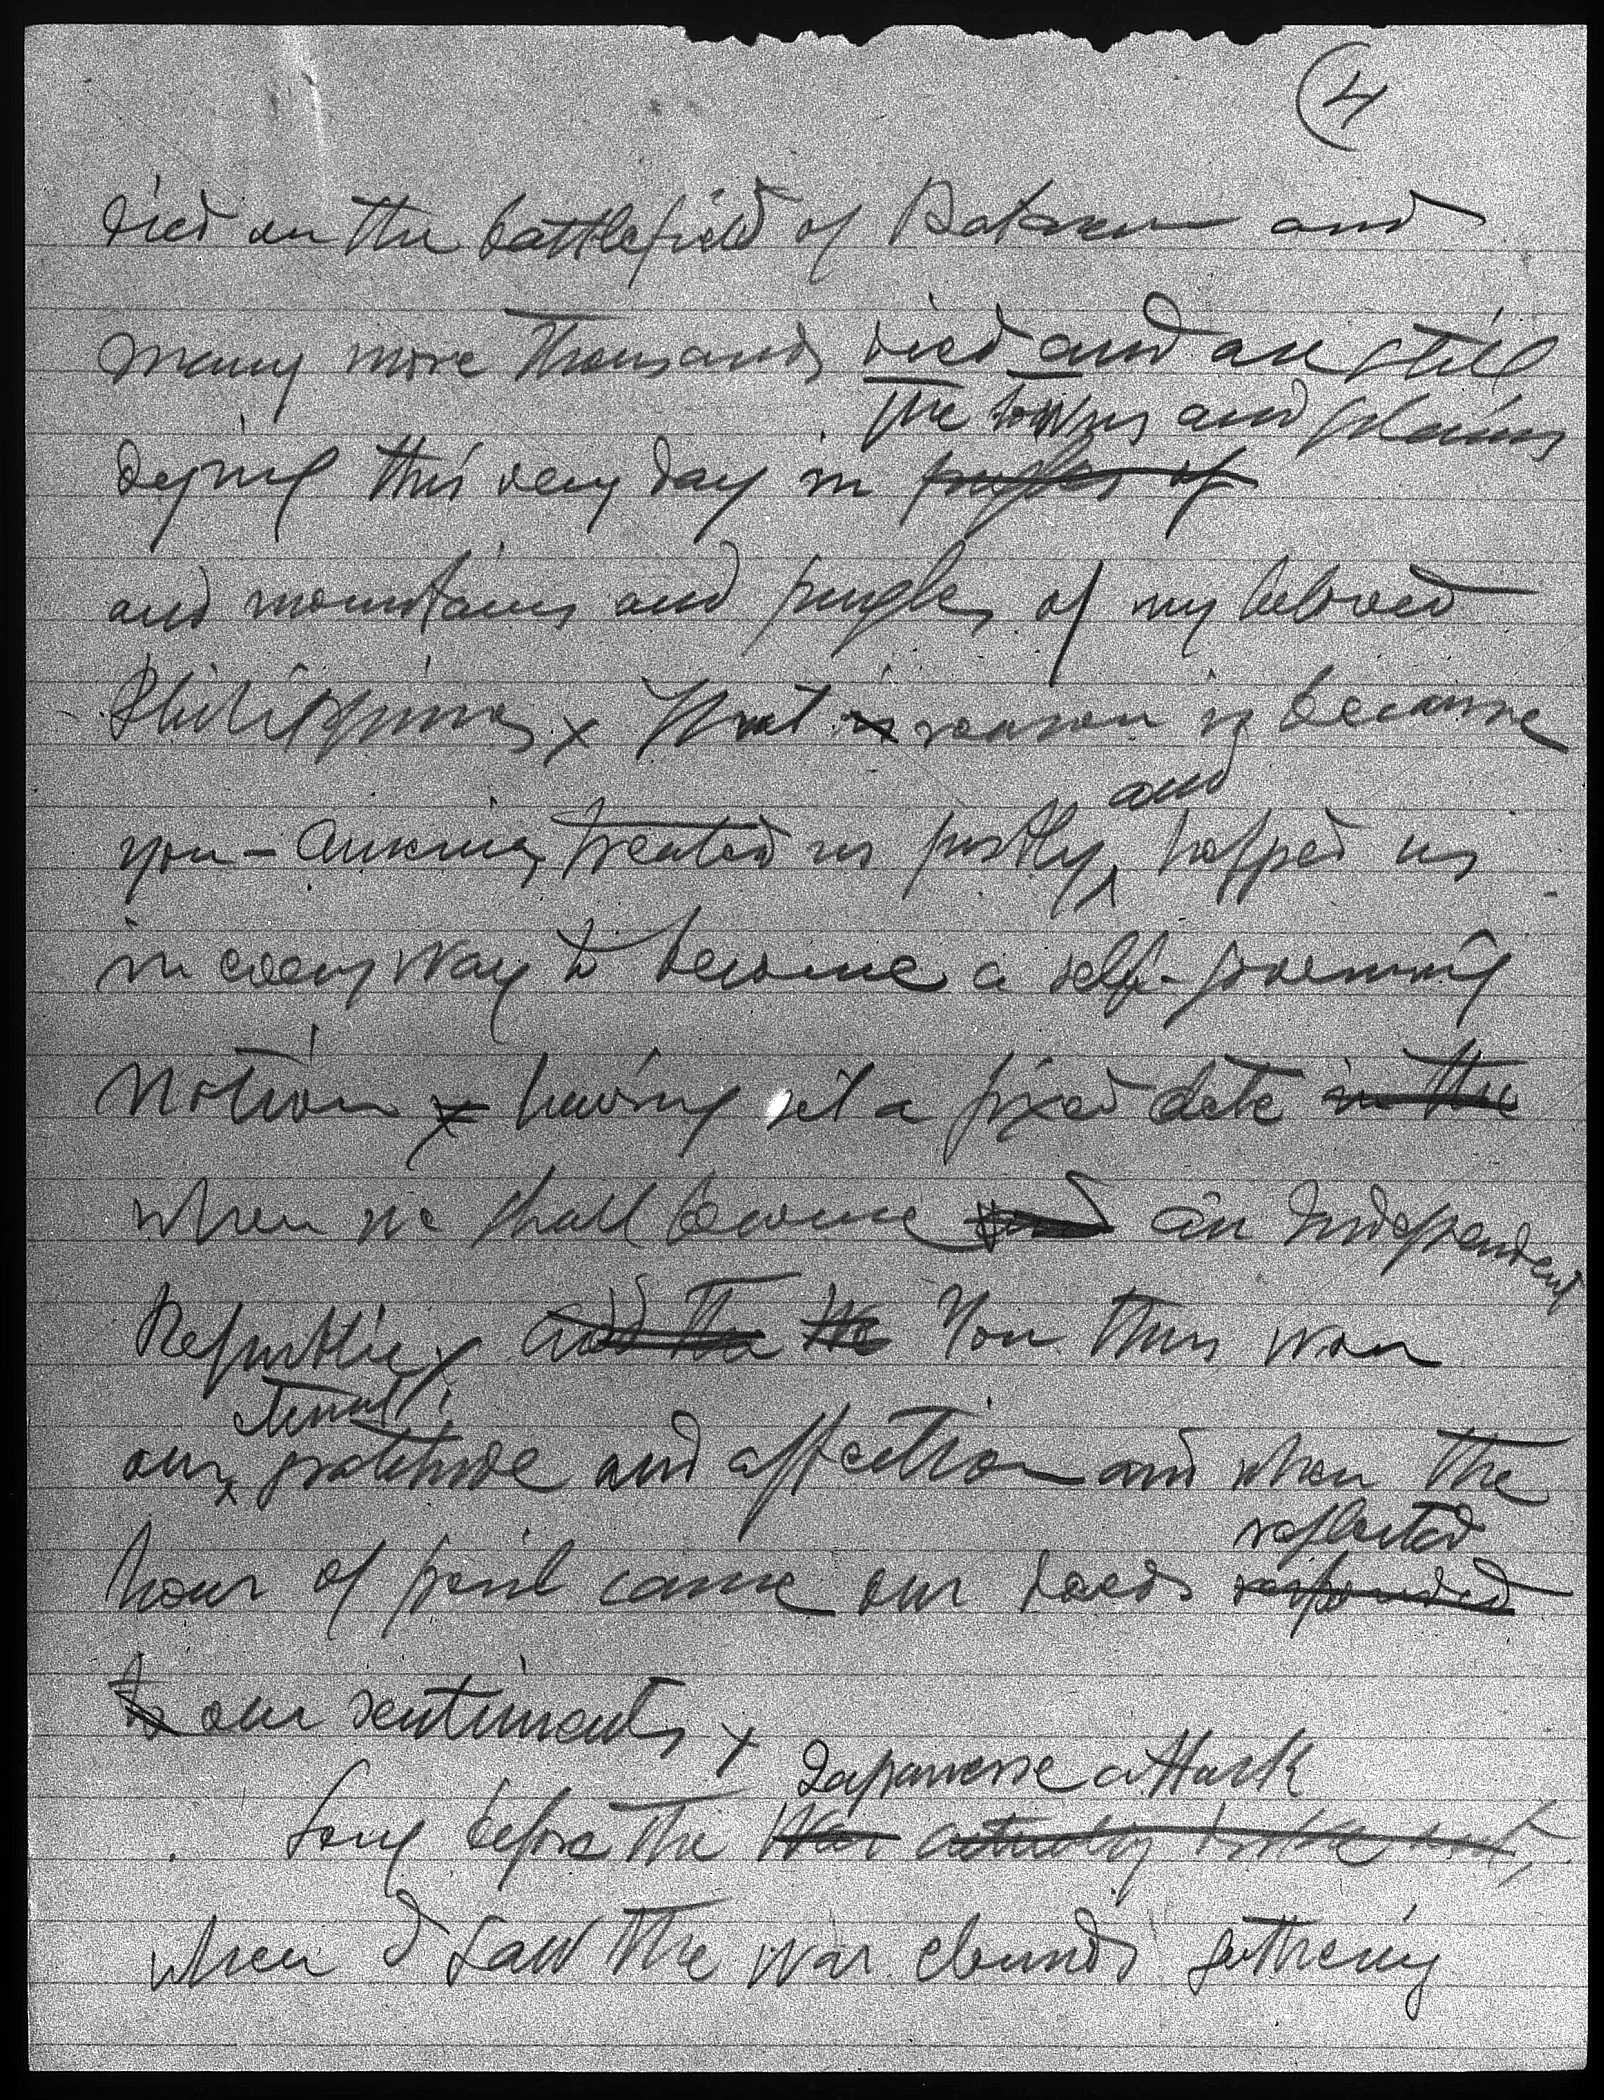 4
died on the battlefield of Bataan and
many more thousands died and are still
the towns and plains
dying this very day in jungles of
and mountains and jungles of my beloved
Philippines x That is reason is because
and
you - America, treated us justly, helped us
in every way to become a self-governing
Nation x having set a fixed date in the
when we shall become an Independent
Republic x and the We You thus won
eternal
our gratitude and affection and when the
reflected
hour of peril came our deeds responded
to our sentiments x
Japanese attack
Long before the War actually broke out,
when I saw the war clouds gathering